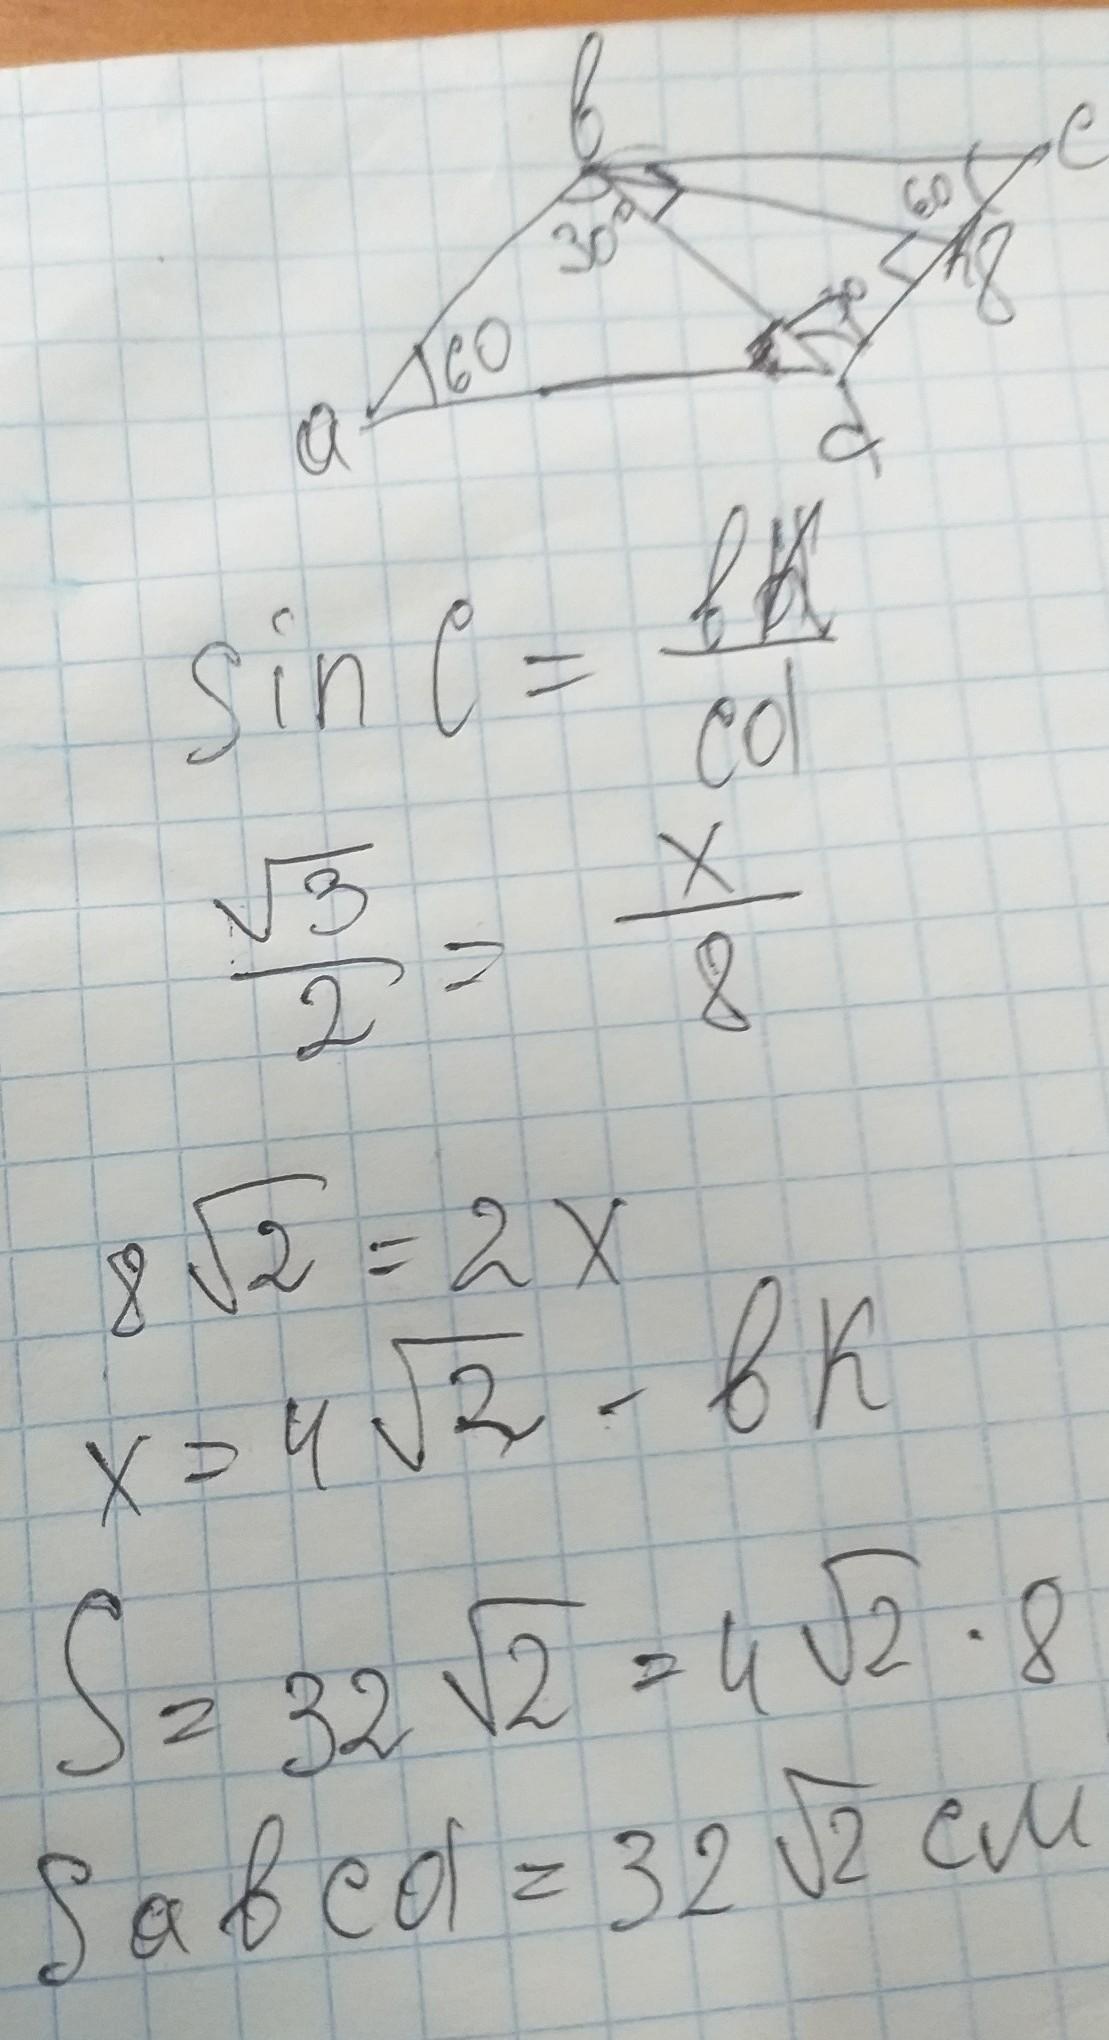 b
c
60
30°
к 8
30
60
a
d
sin C = bк / cd
√3 / 2 = x / 8
8√2 = 2x
x = 4√2 - bк
S = 32√2 = 4√2 · 8
Sabcd = 32√2 см